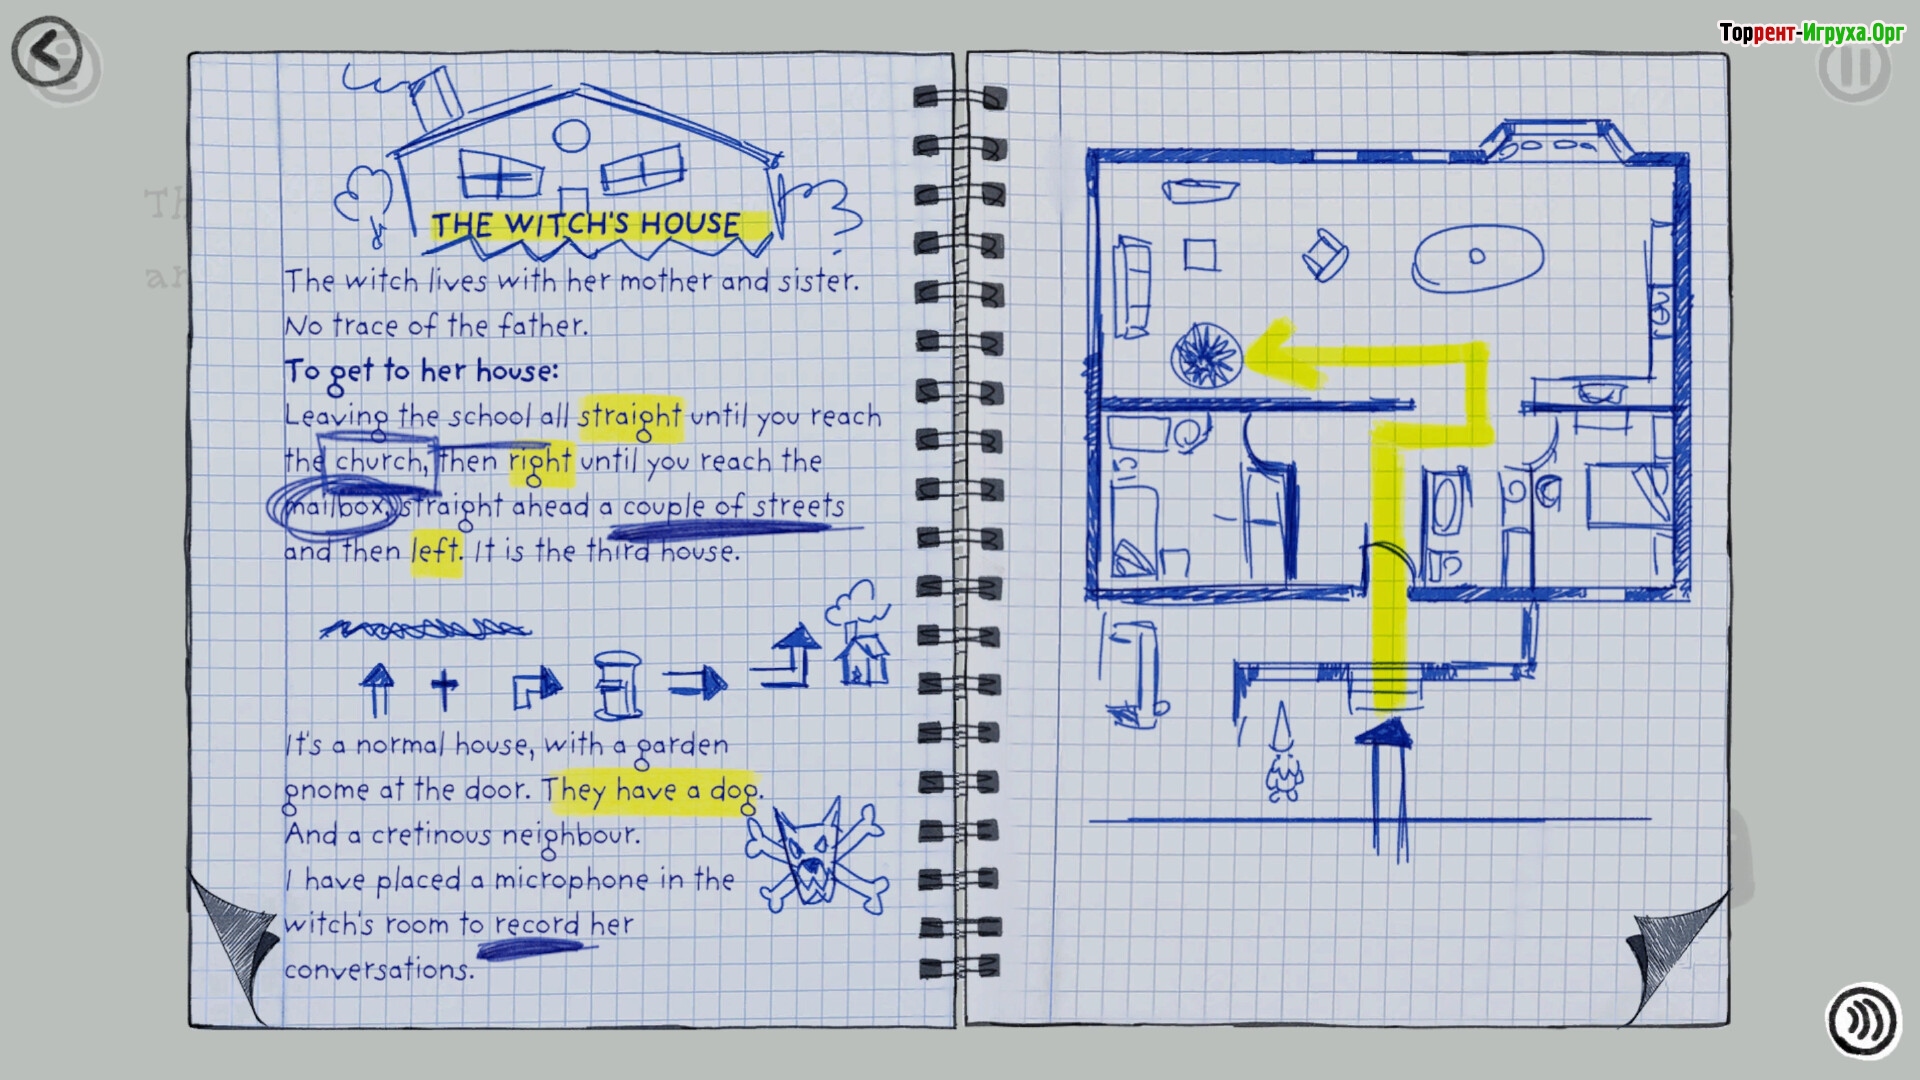 Торрент-Игруха.Орг
THE WITCH'S HOUSE
The witch lives with her mother and sister.
No trace of the father.
To get to her house:
Leaving the school all straight until you reach
the church, then right until you reach the
mailbox, straight ahead a couple of streets
and then left. It is the third house.
It's a normal house, with a garden
gnome at the door. They have a dog.
And a cretinous neighbour.
I have placed a microphone in the
witch's room to record her
conversations.